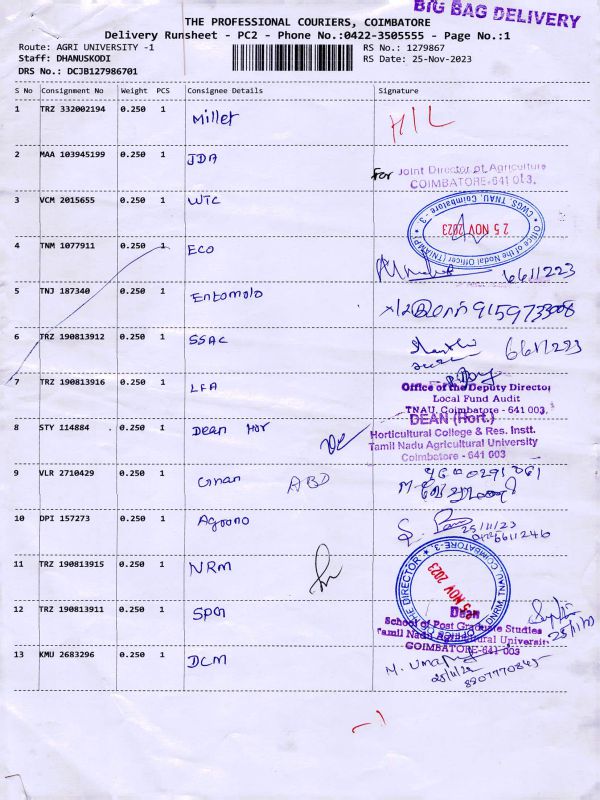 BIG BAG DELIVERY
THE PROFESSIONAL COURIERS, COIMBATORE
Delivery Runsheet - PC2 - Phone No.:0422-3505555 - Page No.:1
Route: AGRI UNIVERSITY -1
RS No.: 1279867
Staff: DHANUSKODI
RS Date: 25-Nov-2023
DRS No.: DCJB127986701
S No Consignment No Weight PCS Consignee Details Signature
1 TRZ 332002194 0.250 1 Millet HIL
2 MAA 103945199 0.250 1 JDA
For Joint Director of Agriculture
COIMBATORE-641 013.
3 VCM 2015655 0.250 1 WTC
Office of the Nodal Officer (TNIAMP) CWGS, TNAU, Coimbatore - 3.
25 NOV 2023
4 TNM 1077911 0.250 1 ECO
6611223
5 TNJ 187340 0.250 1 Entomolo
9159733008
6 TRZ 190813912 0.250 1 SSAC
6611223
7 TRZ 190813916 0.250 1 LFA
Office of the Deputy Director
Local Fund Audit
TNAU, Coimbatore - 641 003.
8 STY 114884 0.250 1 Dean Hor
DEAN (Hort.)
Horticultural College & Res. Instt.
Tamil Nadu Agricultural University
Coimbatore - 641 003
9 VLR 2710429 0.250 1 Gnan ABD
10 DPI 157273 0.250 1 Agrono
25/11/23
6611246
11 TRZ 190813915 0.250 1 NRM
THE DIRECTOR DNRM, TNAU, COIMBATORE-3.
25 NOV 2023
12 TRZ 190813911 0.250 1 SPGS
Dean
School of Post Graduate Studies
Tamil Nadu Agricultural University
COIMBATORE-641 003
13 KMU 2683296 0.250 1 DCM
8907770845
-1